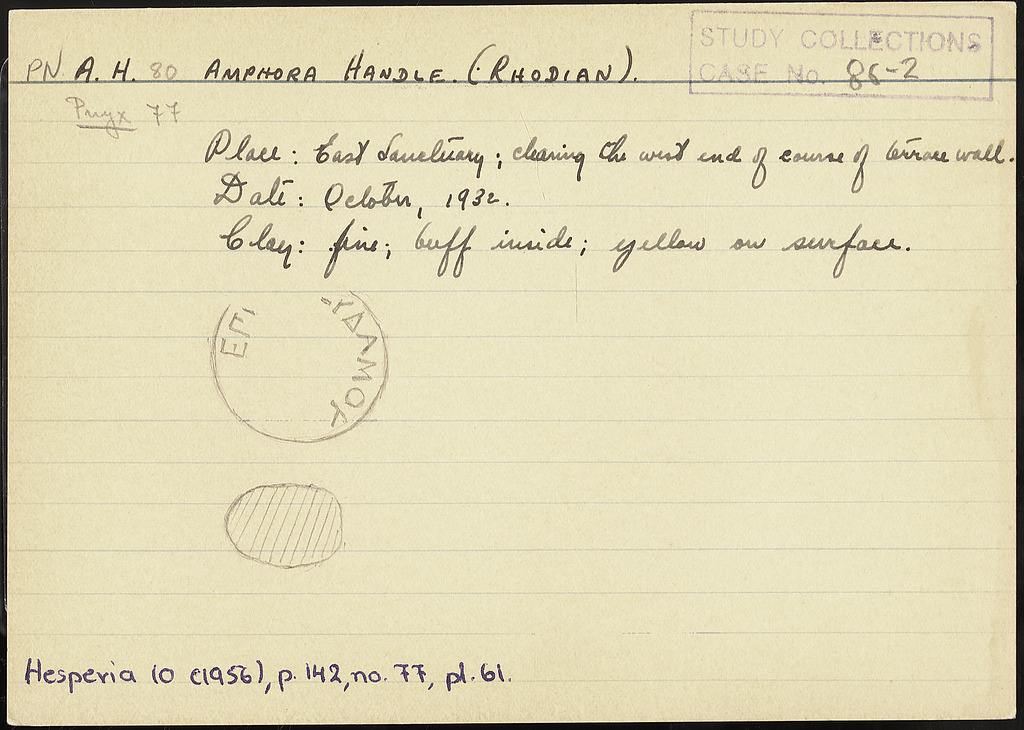 STUDY COLLECTIONS
CASE No. 86-2
PN A. H. 80 AMPHORA HANDLE. (RHODIAN).
Pnyx 77
Place: East Sanctuary; clearing the west end of course of terrace wall.
Date: October, 1932.
Clay: fine; buff inside; yellow on surface.
ΕΠΙ ΥΔΑΜΟΥ
Hesperia 10 (1956), p. 142, no. 77, pl. 61.